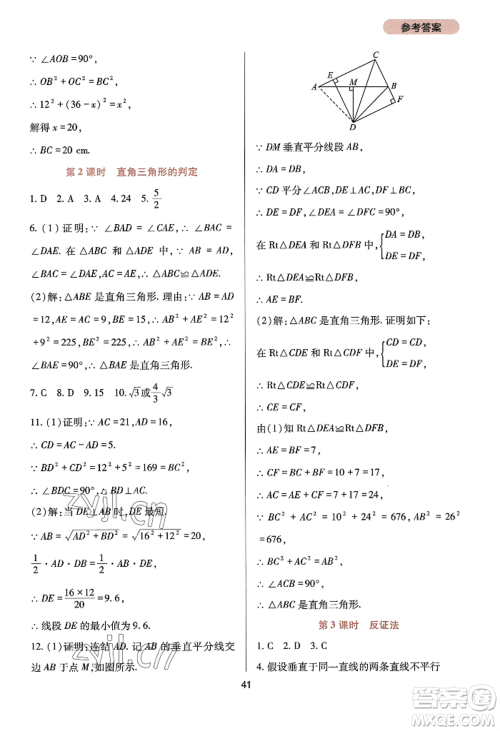 参考答案
∵ ∠AOB=90°,
∴ OB²+OC²=BC²,
∴ 12²+(36-x)²=x²,
解得 x=20,
∴ BC=20 cm.
第2课时 直角三角形的判定
1. D 2. A 3. C 4. 24 5. 5/2
6. (1)证明:∵ ∠BAD=∠CAE,∴ ∠BAC=
∠DAE. 在△ABC 和△ADE 中,
∴ △ABC≌△ADE.
(2)解:△ABE 是直角三角形. 理由:∵ AB=AD
=12,AE=9,BE=15,∴ AB²+AE²=12²
+9²=225,BE²=225,∴ AB²+AE²=BE²,
∴ ∠BAE=90°,∴ △BAE 是直角三角形.
7. C 8. D 9. 15 10. √3或4/3√3
11. (1)证明:∵ AC=21,AD=16,
∴ CD=AC-AD=5.
∵ BD²+CD²=12²+5²=169=BC²,
∴ ∠BDC=90°,∴ BD⊥AC.
(2)解:当 DE⊥AB 时,DE 最短.
∵ AB=√(AD²+BD²)=√(16²+12²)=20,
∴ 1/2·AD·DB=1/2·AB·DE,
∴ DE=(16×12)/20=9.6,
∴ 线段 DE 的最小值为 9.6.
12. (1)证明:连结 AD. 记 AB 的垂直平分线交
AB 于点 M,如图所示.
A
E
C
M
B
F
D
∵ DM 垂直平分线段 AB,
∴ DA=DB.
∵ CD 平分∠ACB,DE⊥AC,DF⊥BC,
∴ DE=DF.
在 Rt△DEA 和 Rt△DFB 中,{DA=DB,
DE=DF,
∴ Rt△DEA≌Rt△DFB,
∴ AE=BF.
(2)解:△ABC 是直角三角形. 证明如下:
在 Rt△CDE 和 Rt△CDF 中,{CD=CD,
DE=DF,
∴ Rt△CDE≌Rt△CDF,
∴ CE=CF.
由(1)知 Rt△DEA≌Rt△DFB,
∴ AE=BF=7,
∴ CE=CF=BF+BC=17,
∴ AC=AE+CE=24.
∵ BC²+AC²=10²+24²=676,AB²=26²
=676,
∴ BC²+AC²=AB²,
∴ ∠ACB=90°,
∴ △ABC 是直角三角形.
第3课时 反证法
1. C 2. D 3. C
4. 假设垂直于同一直线的两条直线不平行
41
zyjl.cn
答案圈
MXQE.COM